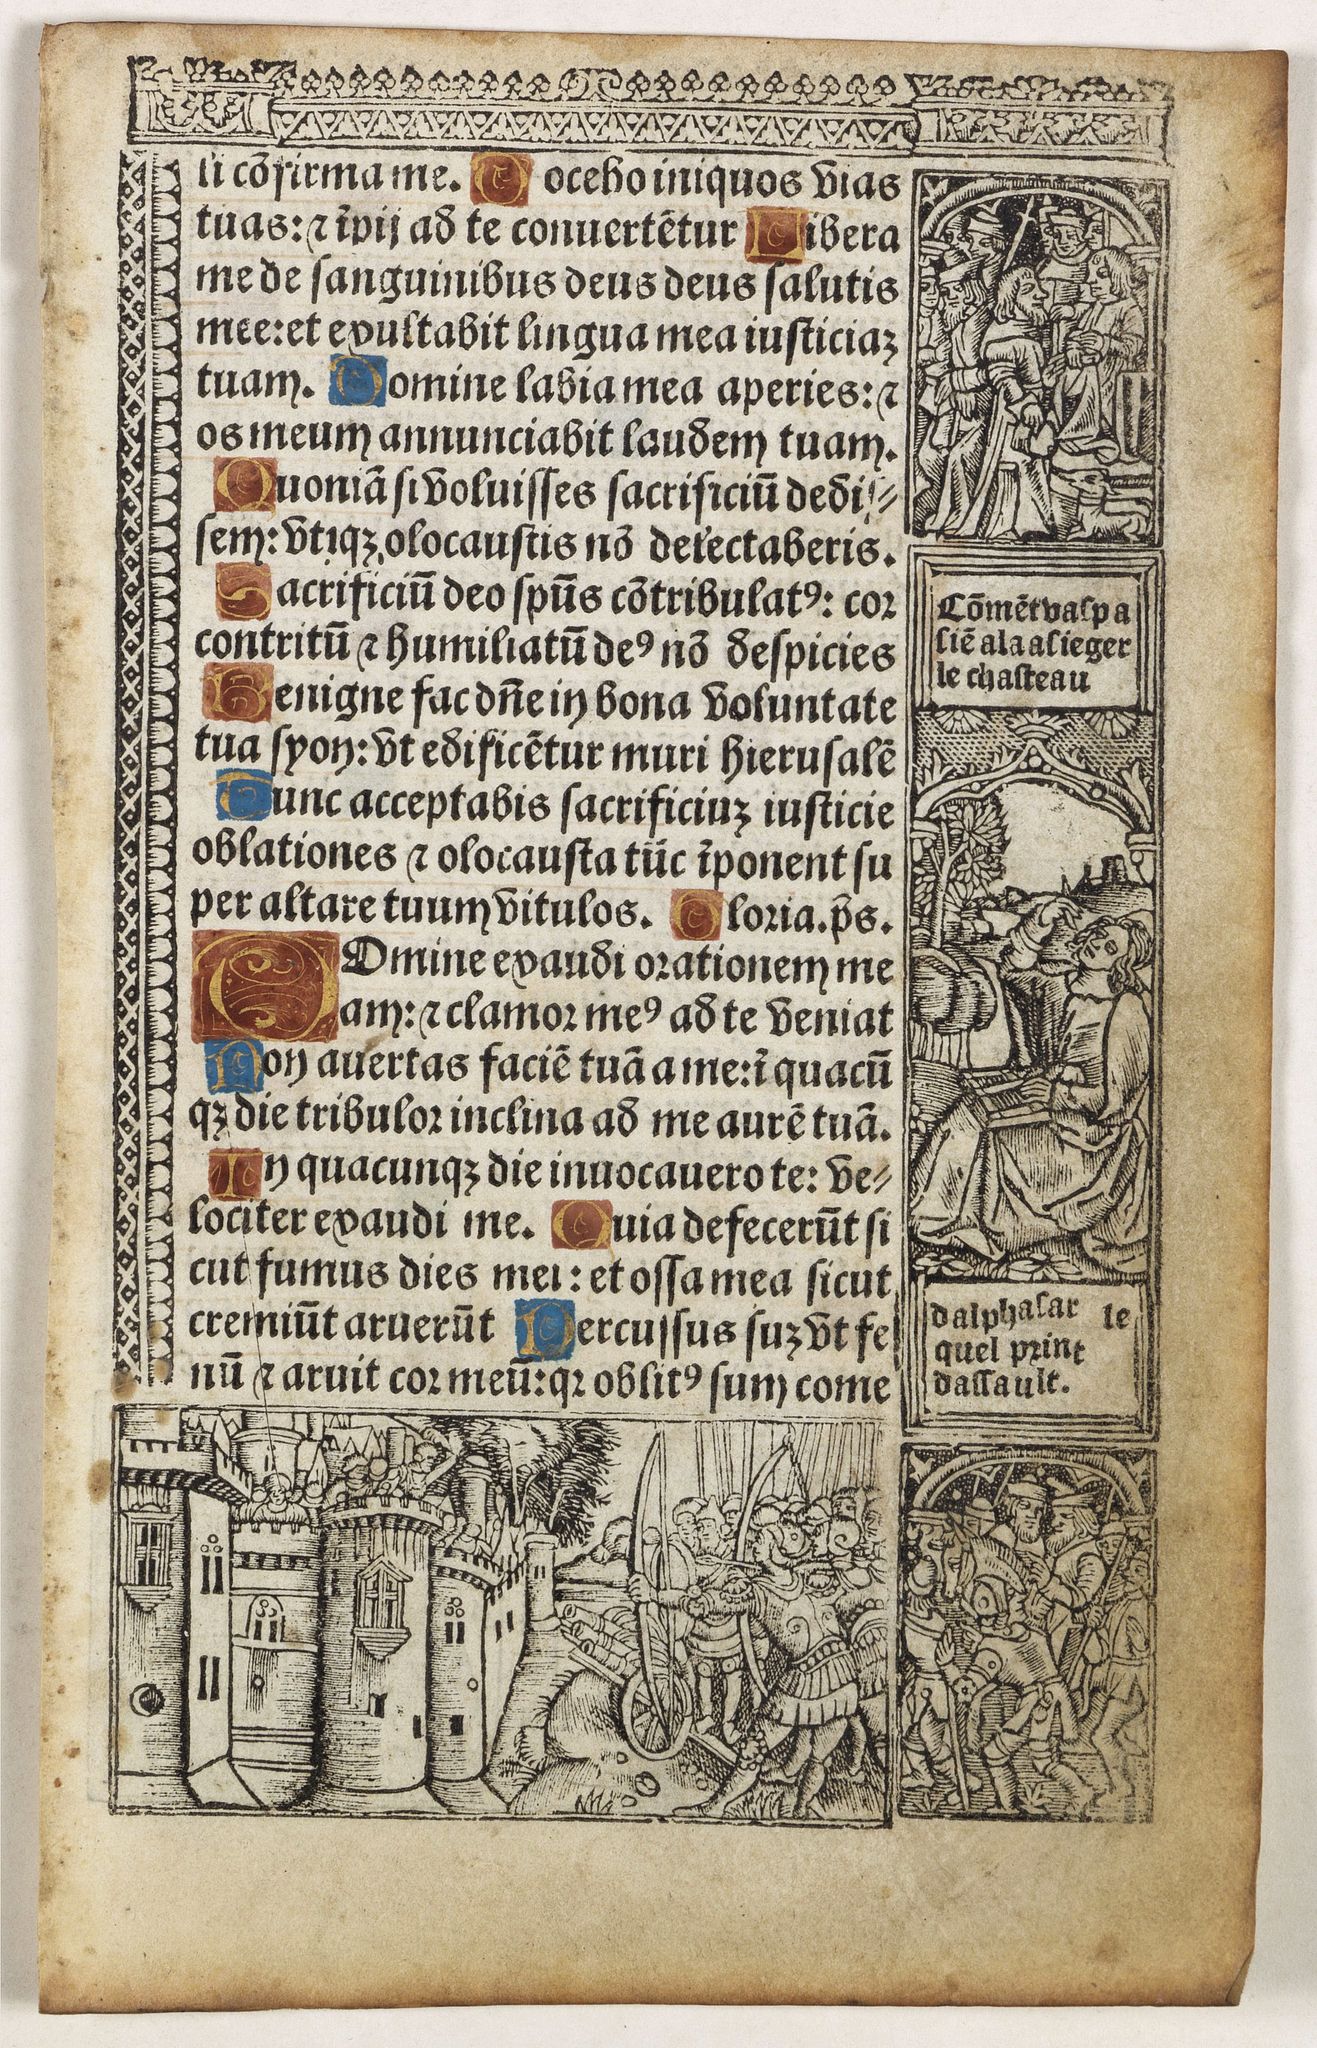 li cōfirma me. Docebo iniquos vias
tuas: ⁊ īpij ad te conuertētur Libera
me de sanguinibus deus deus salutis
mee: et exultabit lingua mea iusticiaꝫ
tuam. Domine labia mea aperies: ⁊
os meum annunciabit laudem tuam.
Quoniā si voluisses sacrificiū dedis⸗
sem: vtiqꝫ olocaustis nō delectaberis.
Sacrificiū deo spūs cōtribulatꝰ: cor
contritū ⁊ humiliatū deꝰ nō despicies
Benigne fac dn̄e in bona voluntate
tua syon: vt edificētur muri hierusalē
Tunc acceptabis sacrificiuꝫ iusticie
oblationes ⁊ olocausta tūc īponent su
per altare tuum vitulos. Gloria. p̄s.
DOmine exaudi orationem me
am: ⁊ clamor meꝰ ad te veniat
Non auertas faciē tuā a me: ī quacū
qꝫ die tribulor inclina ad me aurē tuā.
In quacunqꝫ die inuocauero te: ve⸗
lociter exaudi me. Quia defecerūt si
cut fumus dies mei: et ossa mea sicut
cremiūt aruerūt Percussus suꝫ vt fe
nū ⁊ aruit cor meū: qꝛ oblitꝰ sum come
Cōmēt vaspa
siē ala asieger
le chasteau
dalphasar le
quel print
dassault.